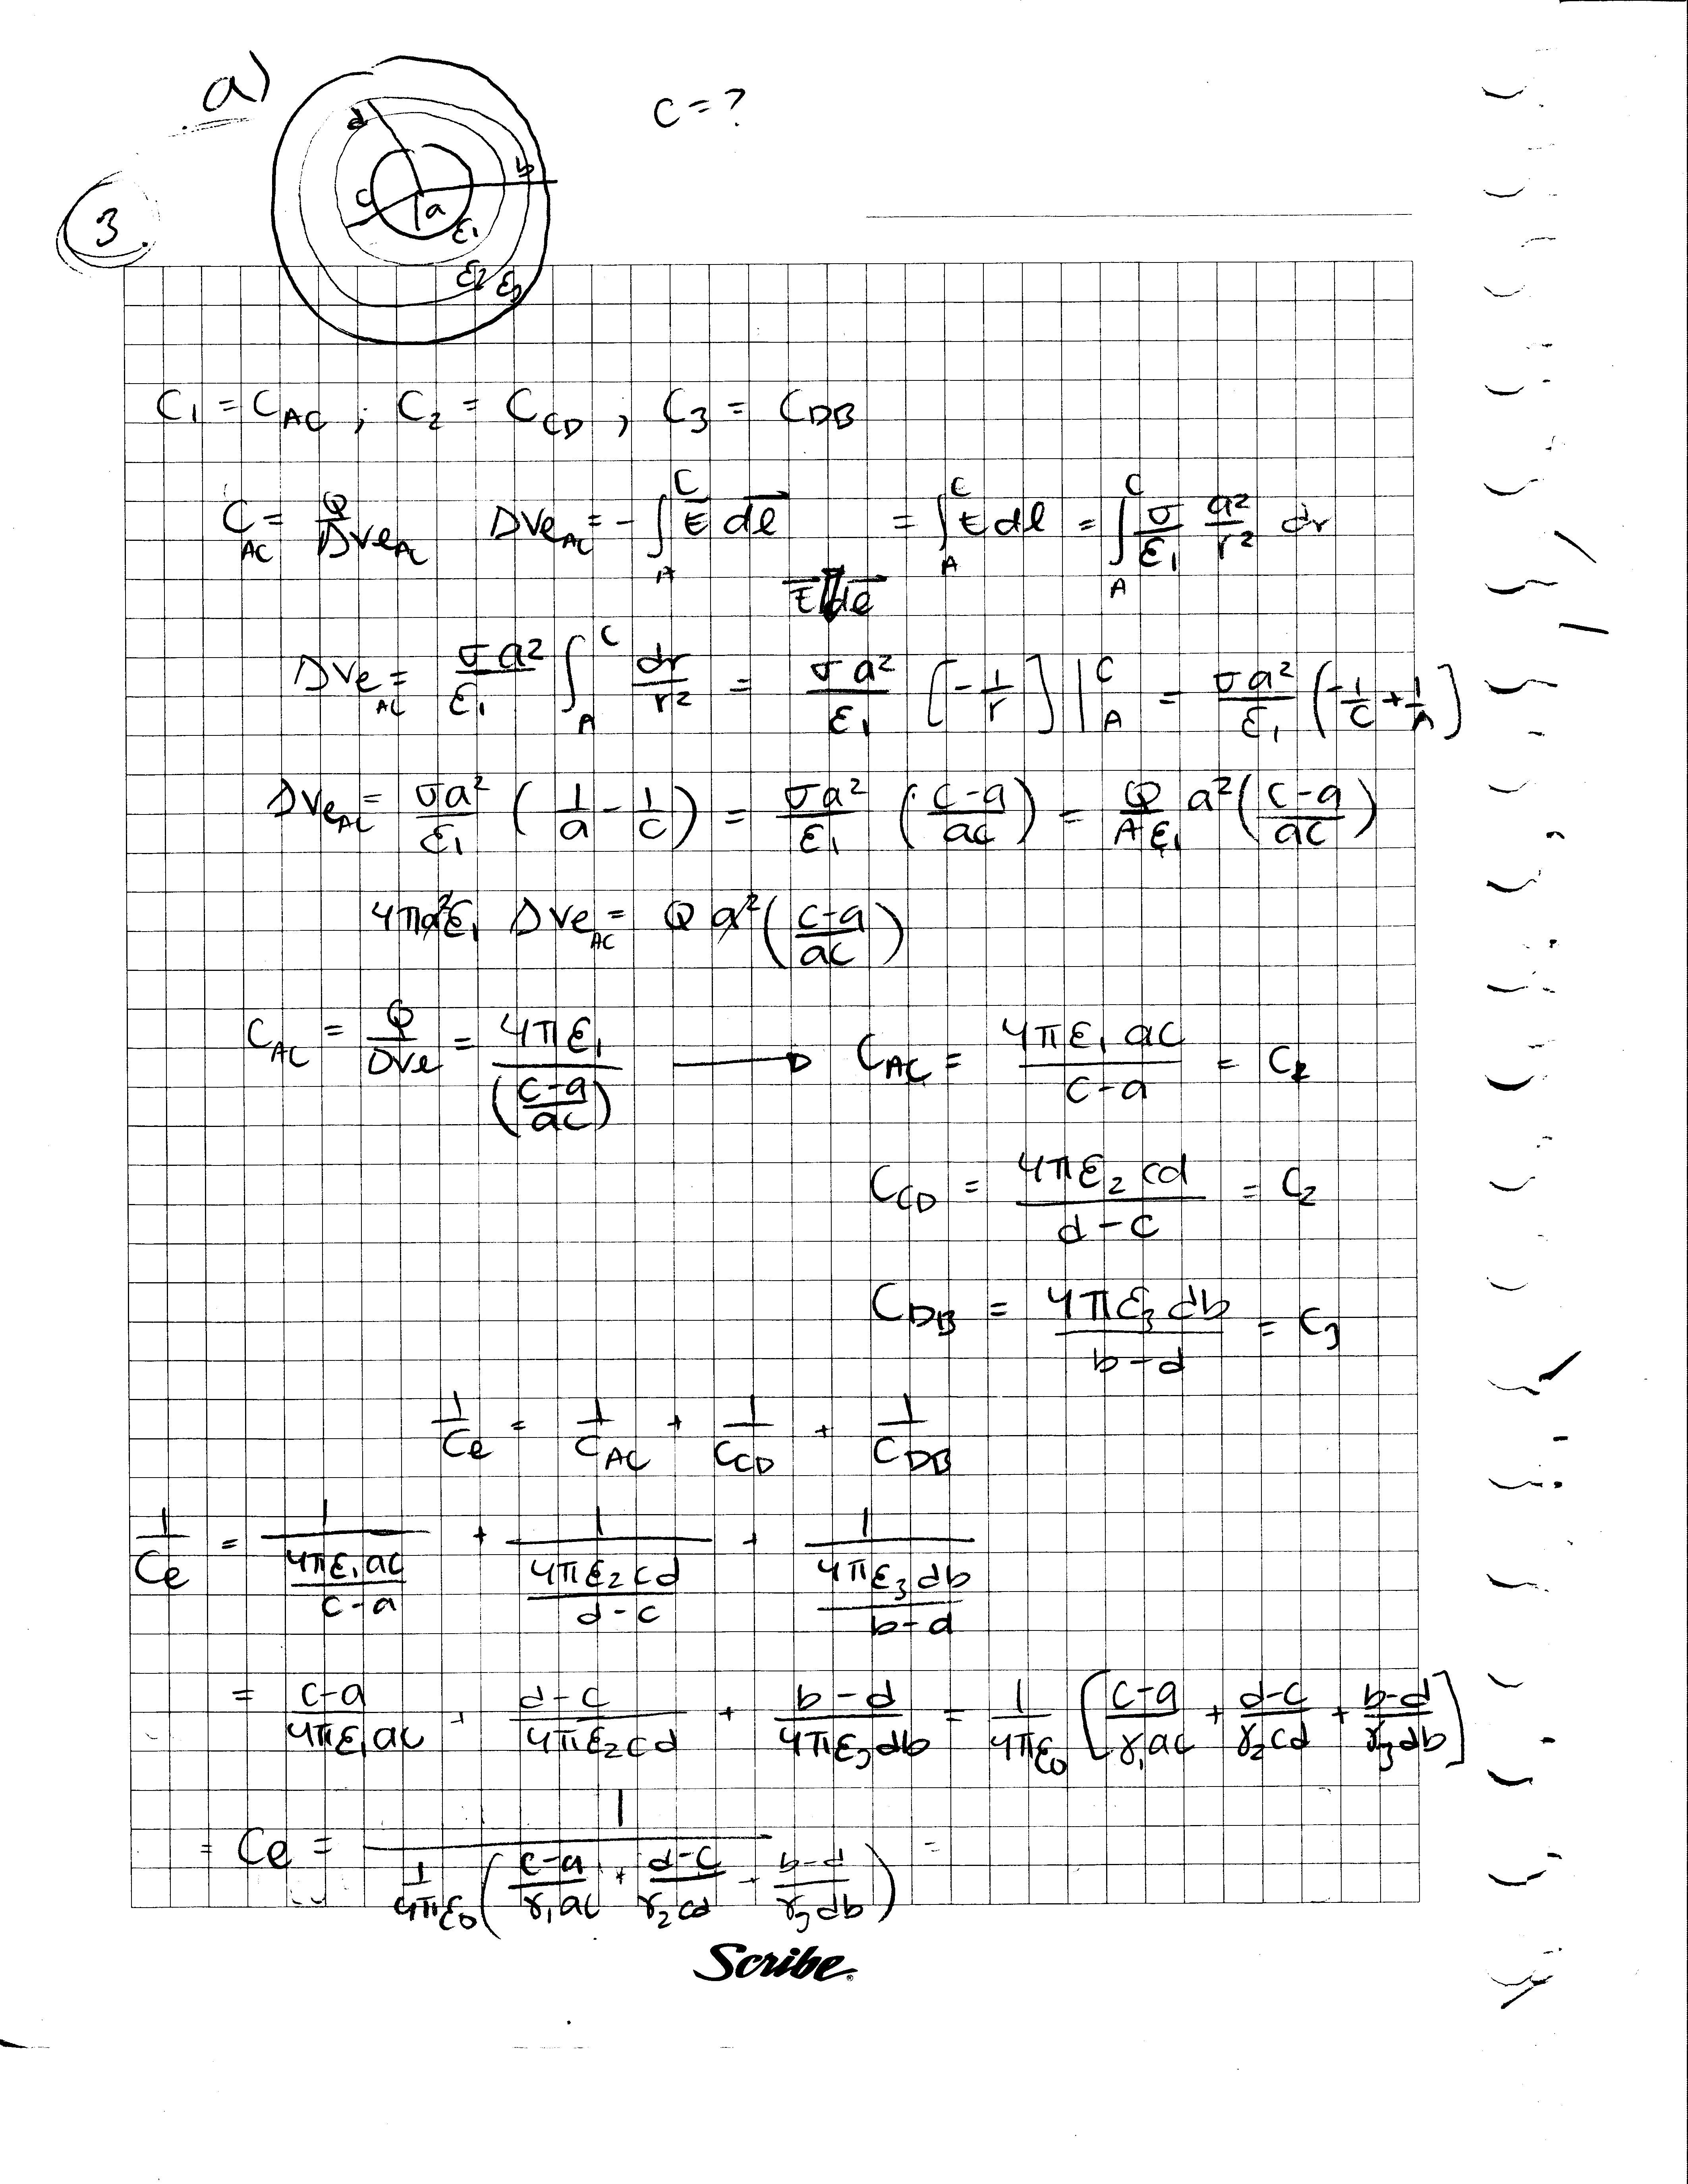 a)
C = ?
3
d
b
c
a
ε₁
ε₂ ε₃
C₁ = C_AC ; C₂ = C_CD ; C₃ = C_DB
C_AC = Q/ΔVe_AC   ΔVe_AC = - ∫_A^C E⃗ dl⃗ = ∫_A^C E dl = ∫_A^C σ/ε₁ a²/r² dr
E⃗ || dl⃗
ΔVe_AC = σa²/ε₁ ∫_A^C dr/r² = σa²/ε₁ [-1/r] |_A^C = σa²/ε₁ (-1/C + 1/A]
ΔVe_AC = σa²/ε₁ (1/a - 1/c) = σa²/ε₁ (c-a/ac) = Q/Aε₁ a² (c-a/ac)
4πa²ε₁ ΔVe_AC = Q a² (c-a/ac)
C_AC = Q/ΔVe = 4πε₁/(c-a/ac) → C_AC = 4πε₁ac/c-a = C₁
C_CD = 4πε₂cd/d-c = C₂
C_DB = 4πε₃db/b-d = C₃
1/Ce = 1/C_AC + 1/C_CD + 1/C_DB
1/Ce = 1/(4πε₁ac/c-a) + 1/(4πε₂cd/d-c) + 1/(4πε₃db/b-d)
= c-a/4πε₁ac + d-c/4πε₂cd + b-d/4πε₃db = 1/4πε₀ [c-a/γ₁ac + d-c/γ₂cd + b-d/γ₃db]
= Ce = 1/(1/4πε₀ (c-a/γ₁ac + d-c/γ₂cd + b-d/γ₃db)) =
Scribe®